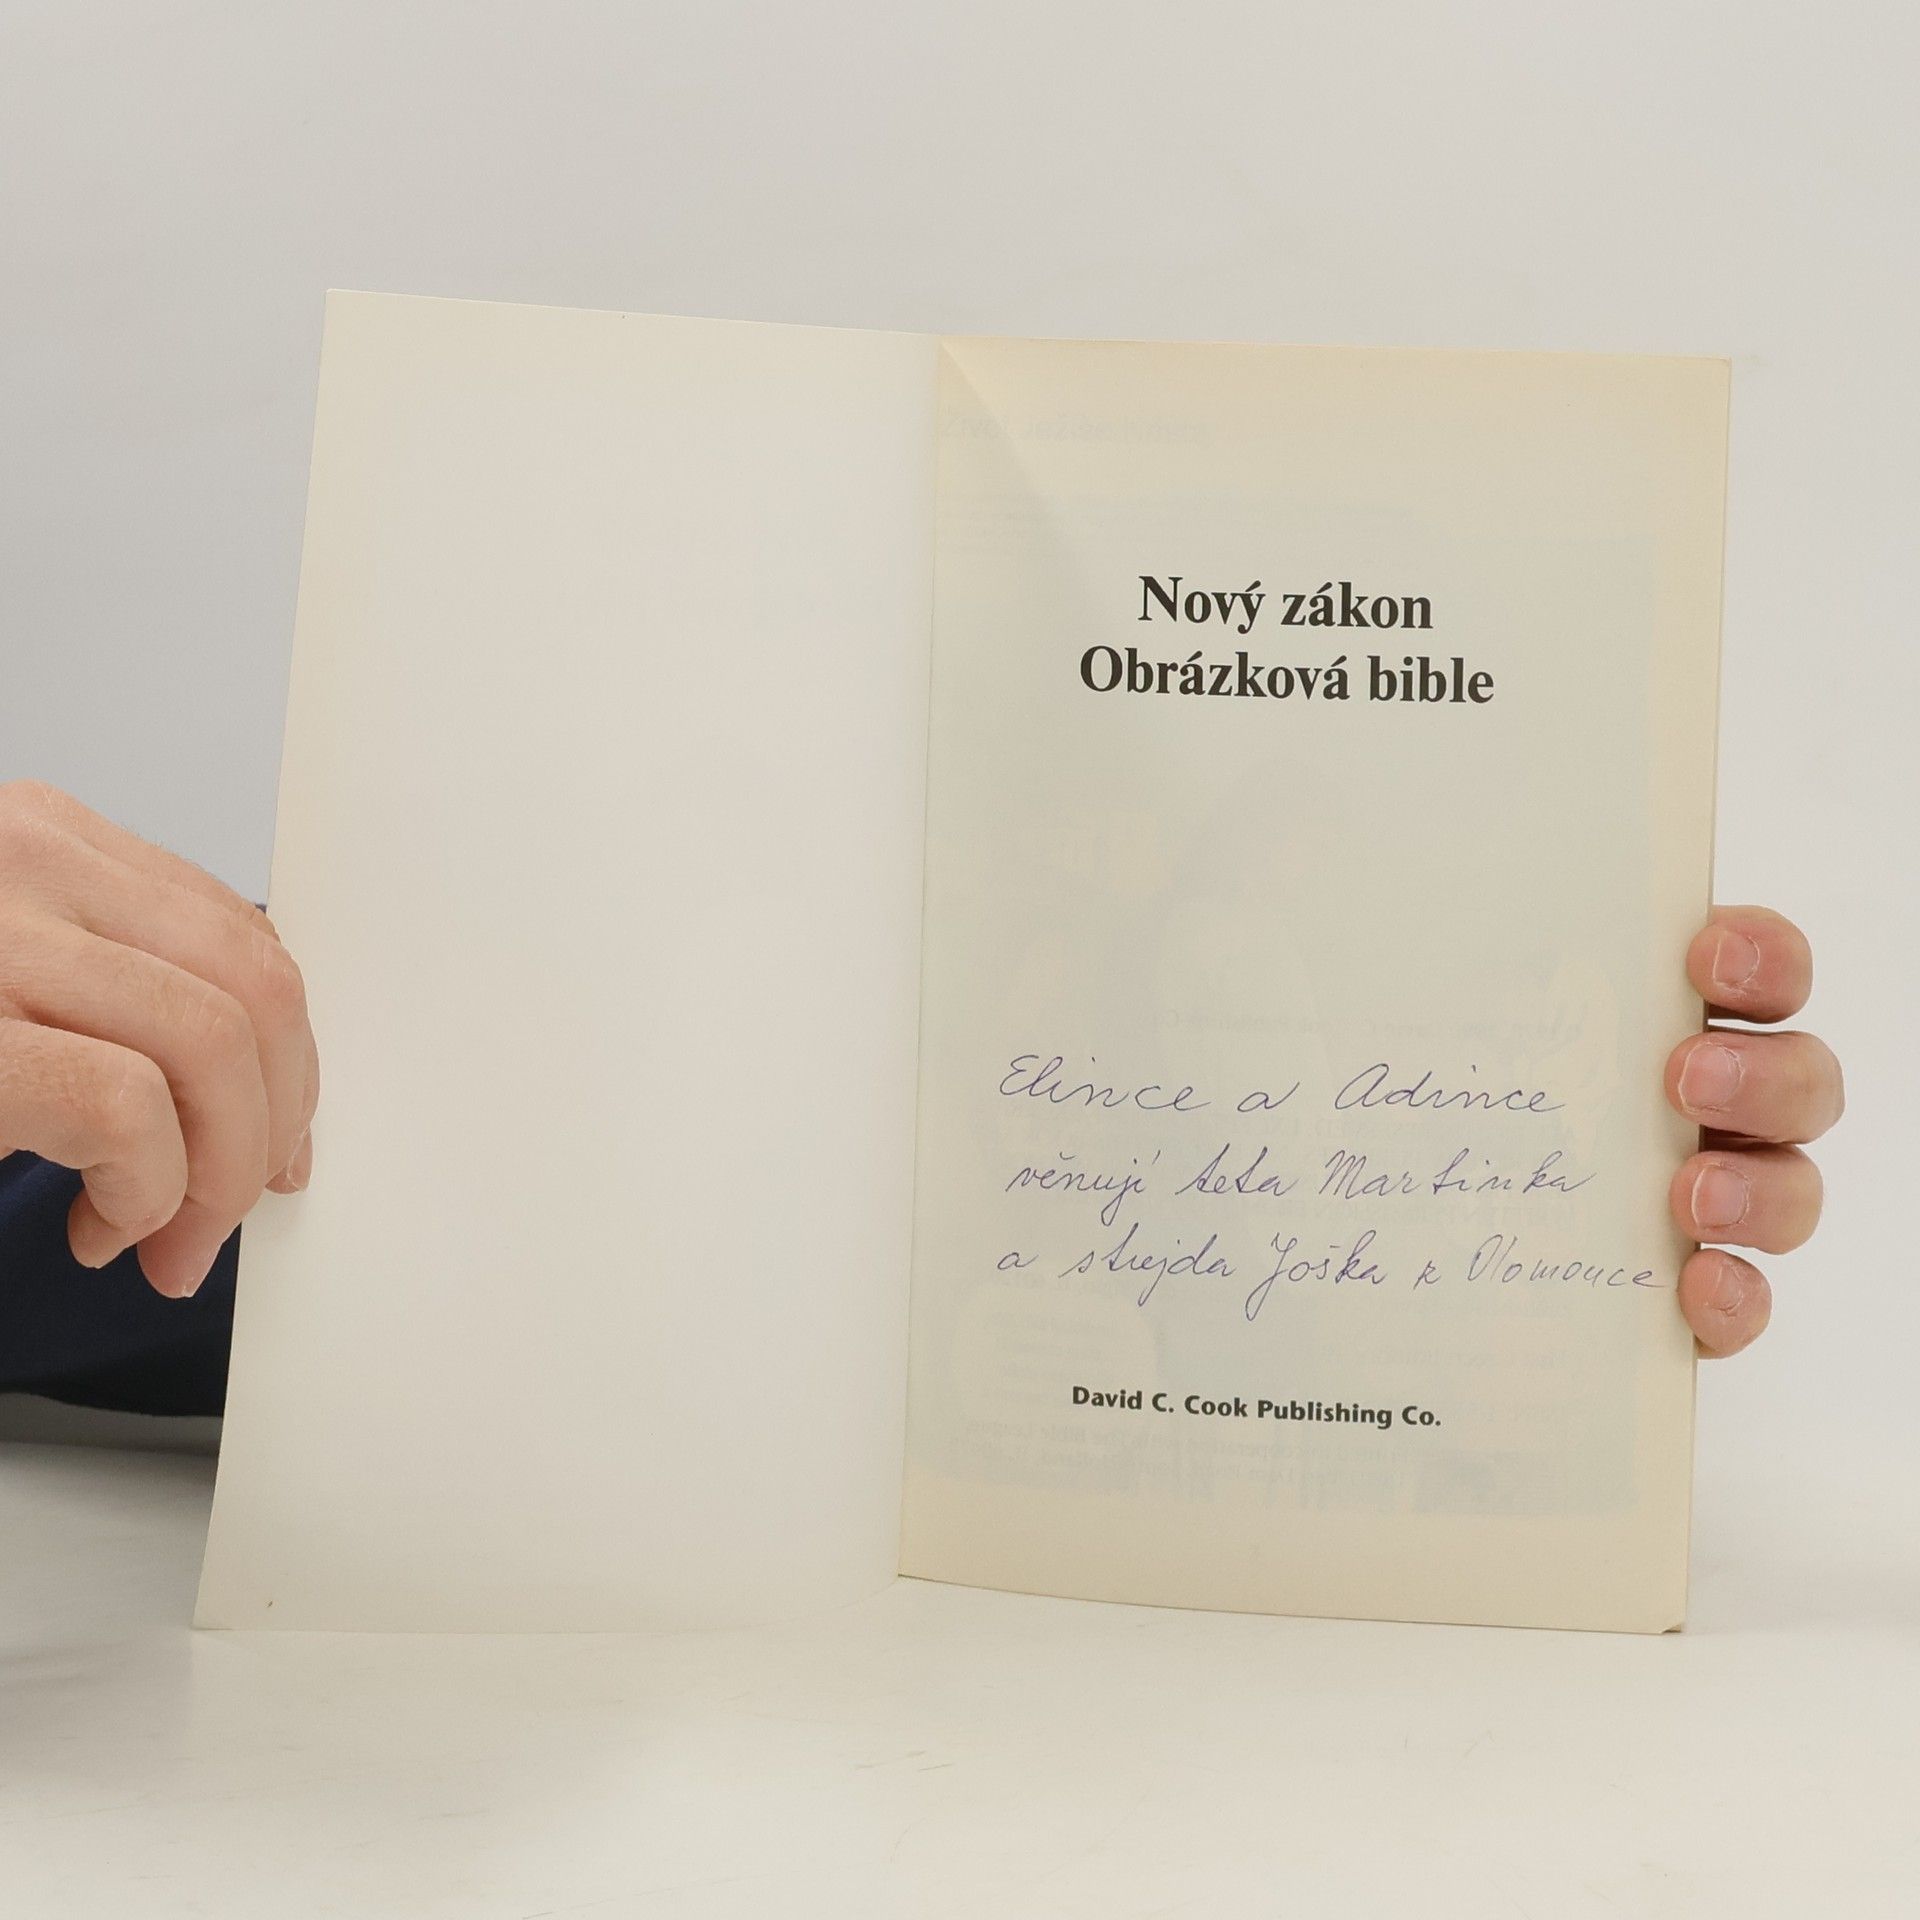 Nový zákon
Obrázková bible
Elince a Adince
věnují teta Martinka
a strejda Joška z Olomouce
David C. Cook Publishing Co.